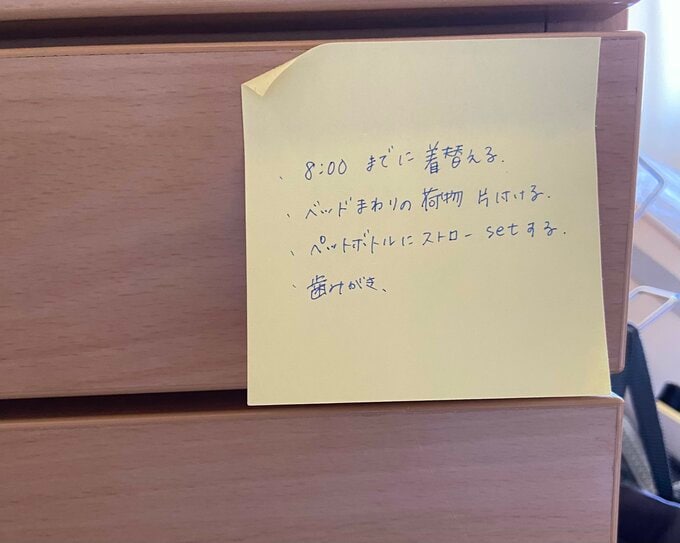 、8:00 までに 着替える.
、ベッドまわりの荷物 片付ける.
、ペットボトルにストロー setする.
、歯みがき、